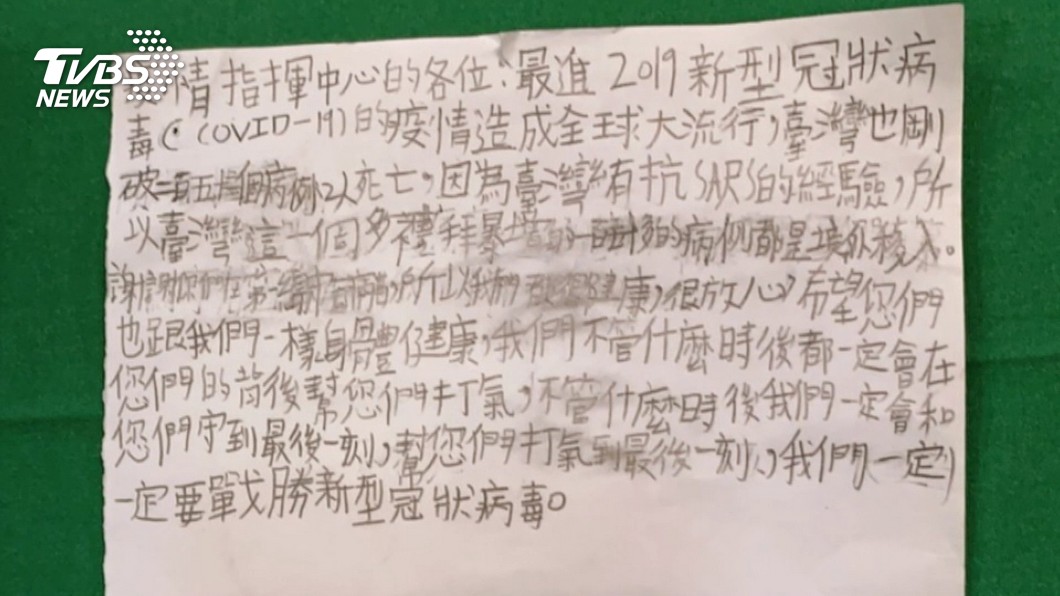 TVBS
NEWS
情指揮中心的各位：最進2019新型冠狀病
毒（COVID-19)的疫情造成全球大流行，臺灣也剛
破一百五十個病例以死亡，因為臺灣有抗SARS的經驗，所
以臺灣這一個多禮拜暴增的一百多的病例都是境外移入。
謝謝您們在第一線守，所以我們健康，很放心，希望您們
也跟我們一樣身體健康，我們不管什麼時後都一定會在
您們的背後幫您們打氣，不管什麼時後我們一定會和
您們守到最後一刻，幫您們打氣到最後一刻，我們一定
一定要戰勝新型冠狀病毒。